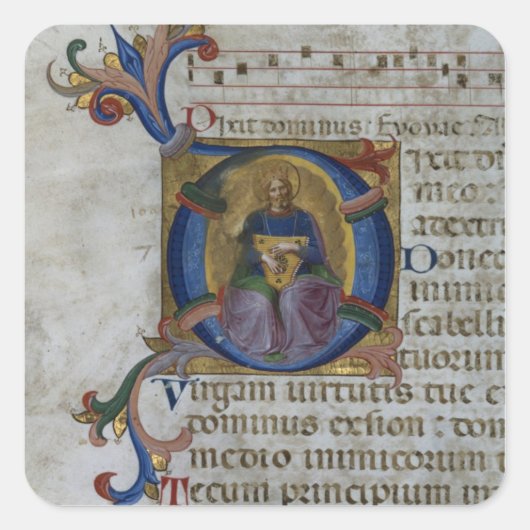 Dixit dominus: Evovae: A
Dixit di
meo:
adextri
Donec
inimi
scabelli
tuorum
Virgam uirtutis tue e
dominus exsion: dom
medio inimicorum
Tecum principium in